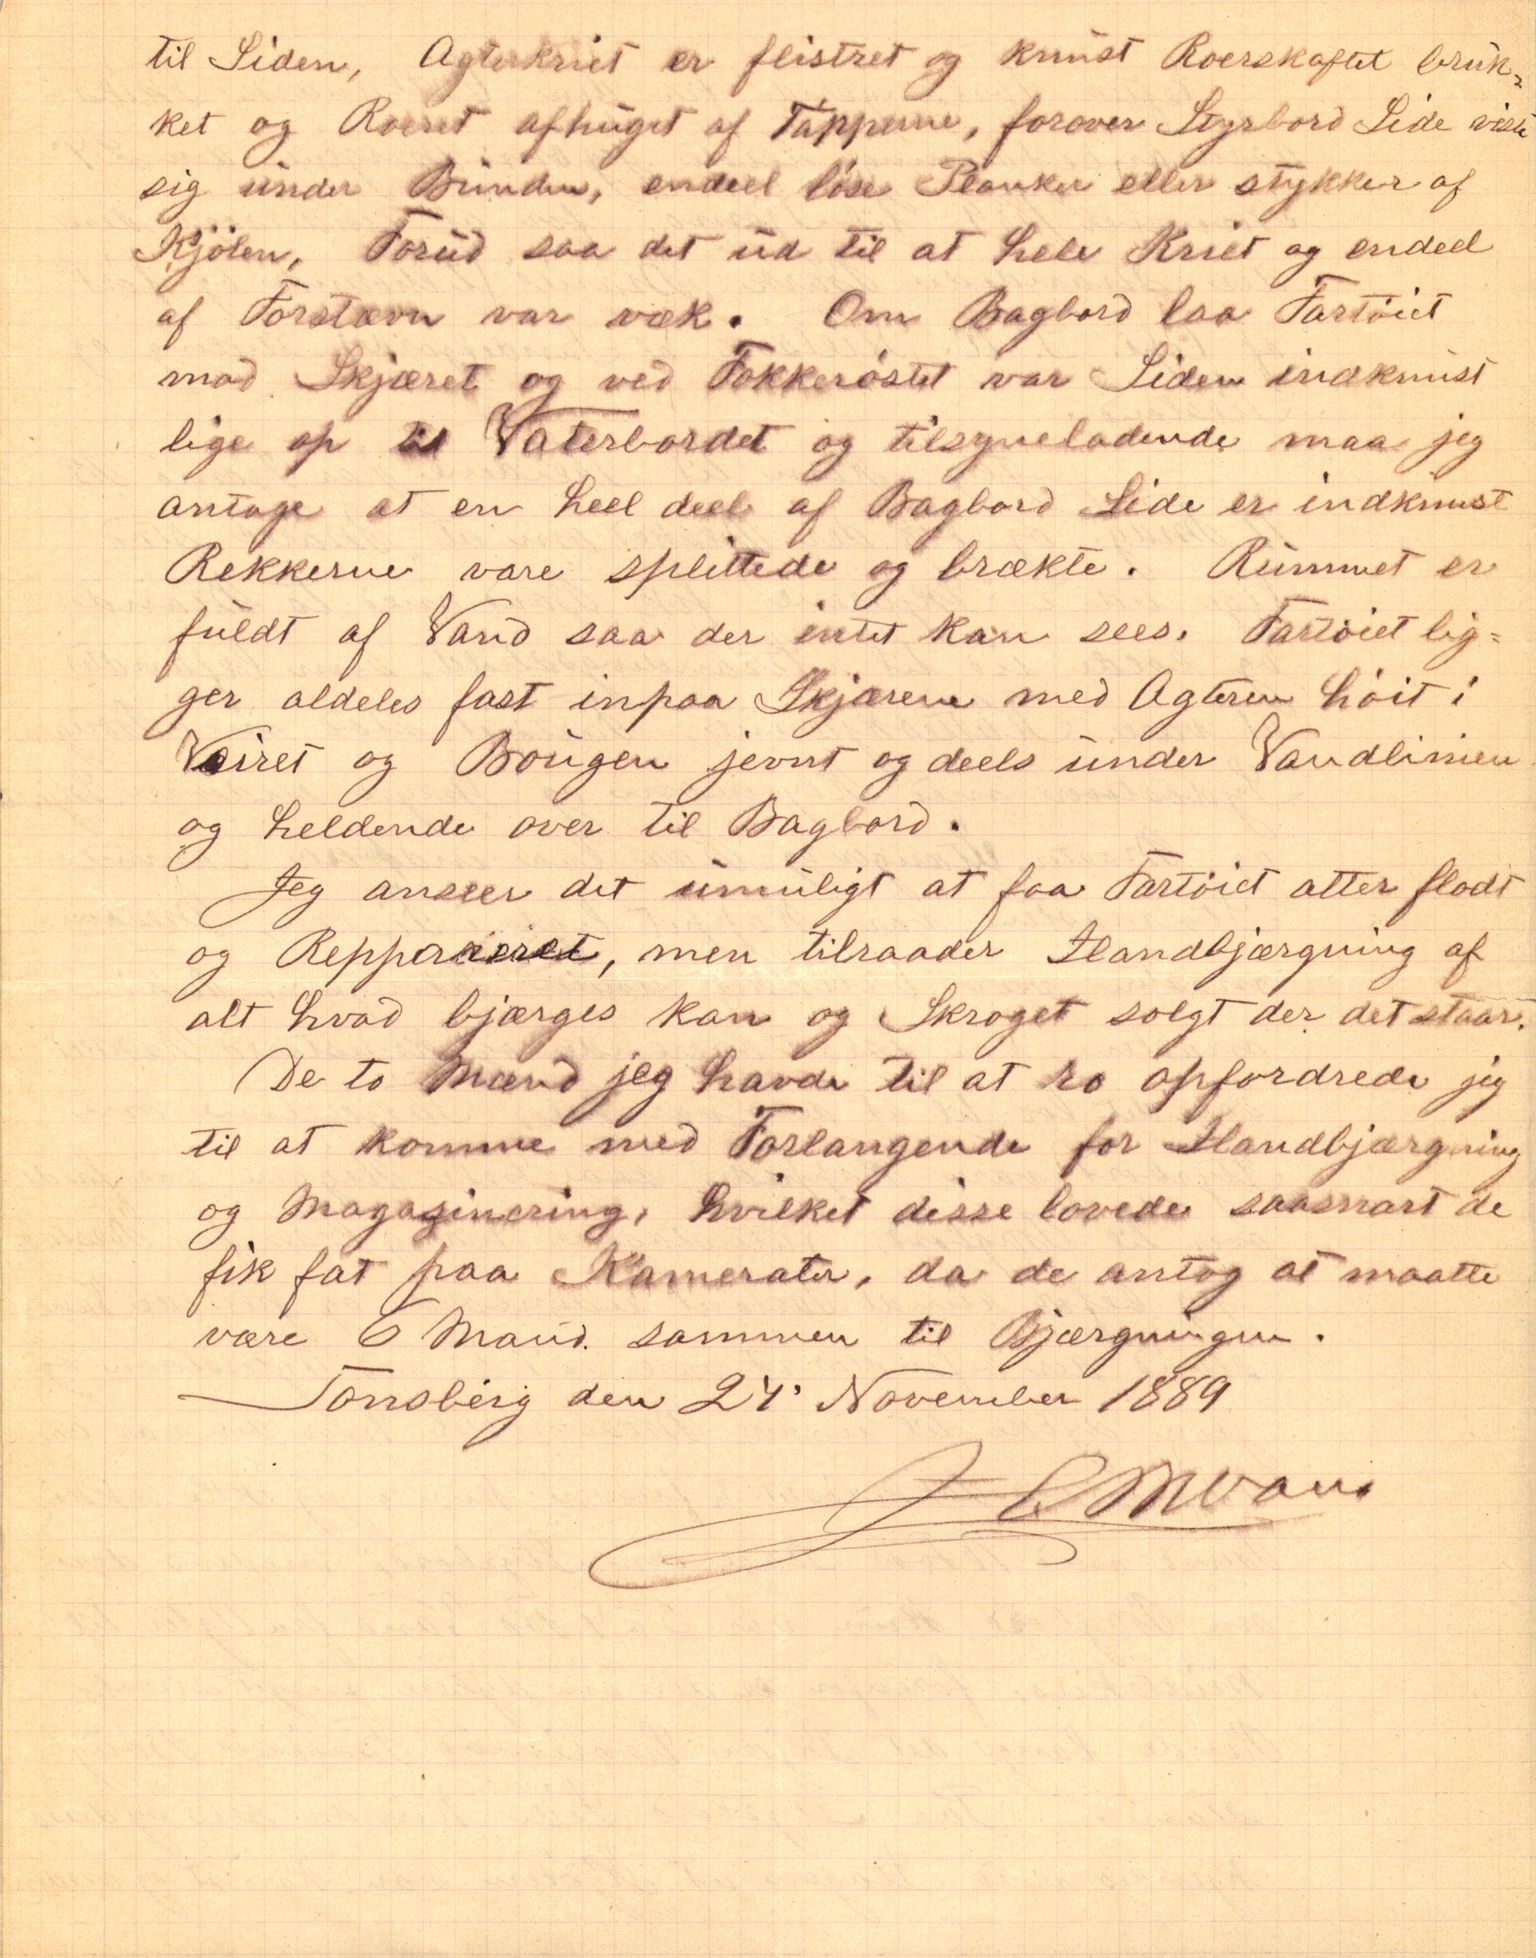 til Siden, Agterkniet er flistret og knust Roerskaftet bruk=
ket og Roeret afhuget af Tapperne, forover Styrbord Side viste
sig under Bunden, endeel løse Planker eller stykker af
Kjölen, Forud saa det ud til at hele Kniet og endeel
af Forstævn var væk. Om Bagbord laa Fartöiet
mod Skjæret og ved Fokkeröstet var Siden indknust
lige op til Vaterbordet og tilsyneladende maa jeg
antage at en heel deel af Bagbord Side er indknust
Rekkerne vare splittede og brækte. Rummet er
fuldt af Vand saa der intet kan sees. Fartöiet lig=
ger aldeles fast inpaa Skjærene med Agteren höit i
Veiret og Bougen jevnt og deels under Vandlinien
og heldende over til Bagbord.
Jeg anseer det umuligt at faa Fartöiet atter flodt
og Reppareret, men tilraader Handbjærgning af
alt hvad bjærges kan og Skroget solgt der det staar.
De to Mænd jeg havde til at ro opfordrede jeg
til at komme med Forlangende for Handbjærgning
og Magasinering, hvilket disse lovede saasnart de
fik fat paa Kamerater, da de antog at maatte
være 6 Mand sammen til Bjærgningen.
Tønsberg den 24' November 1889